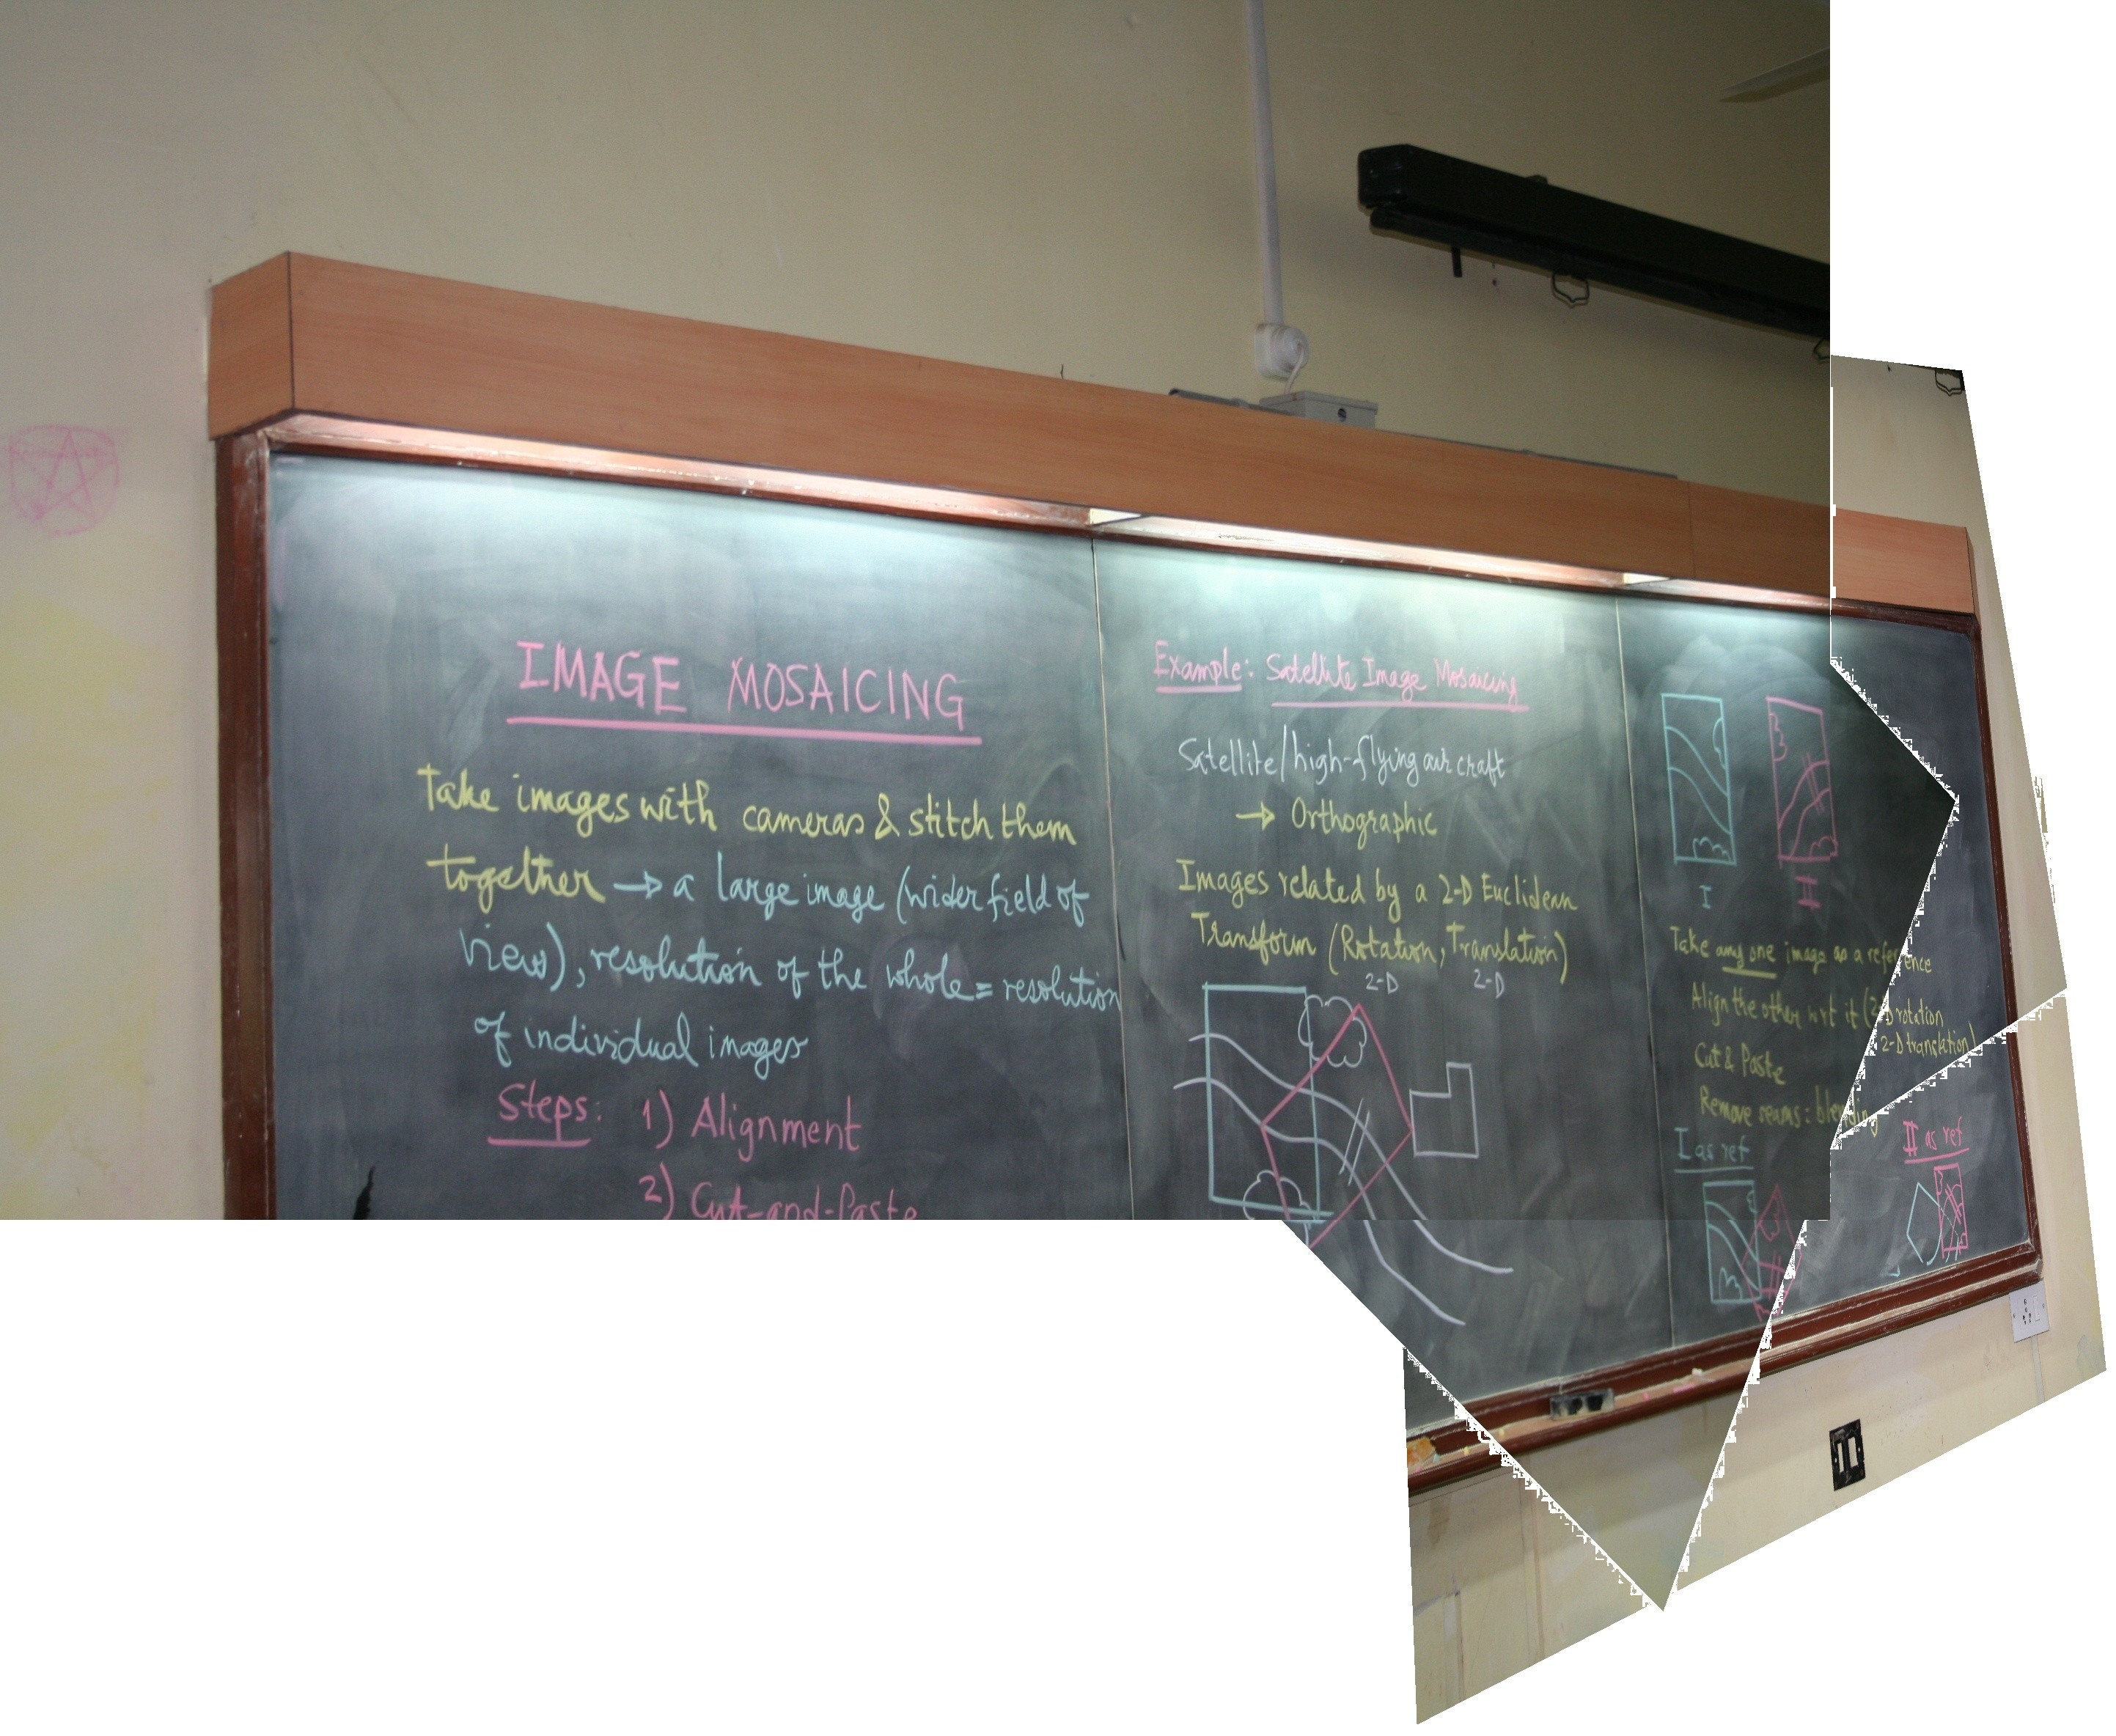 IMAGE MOSAICING
Take images with cameras & stitch them
together → a large image (wider field of
view), resolution of the whole = resolution
of individual images
Steps: 1) Alignment
2) Cut-and-Paste
Example: Satellite Image Mosaicing
Satellite/high-flying air craft
→ Orthographic
Images related by a 2-D Euclidean
Transform (Rotation, Translation)
2-D 2-D
I II
Take any one image as a reference
Align the other wrt it (2-D rotation
2-D translation)
Cut & Paste
Remove seams: blending
I as ref
II as ref